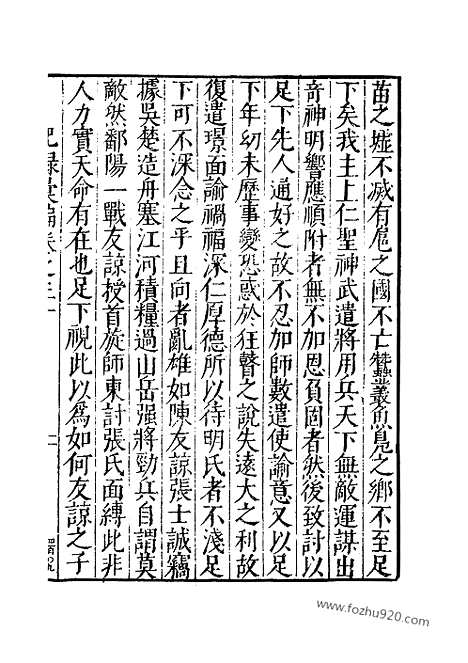 苗之墟不滅有扈之國不亡蠶叢魚鳧之鄉不至足
下矣我主上仁聖神武遣將用兵天下無敵運謀出
奇神明響應順附者無不加恩負固者然後致討以
足下先人通好之故不忍加師數遣使諭意又以足
下年幼未歷事變恐惑於狂瞽之說失遠大之利故
復遣璟面諭禍福深仁厚德所以待明氏者不淺足
下可不深念之乎且向者亂雄如陳友諒張士誠竊
據吳楚造舟塞江河積糧過山岳强將勁兵自謂莫
敵然鄱陽一戰友諒授首旋師東討張氏面縛此非
人力實天命有在也足下視此以爲如何友諒之子
紀録彙編卷之三十
www.fozhu920.com